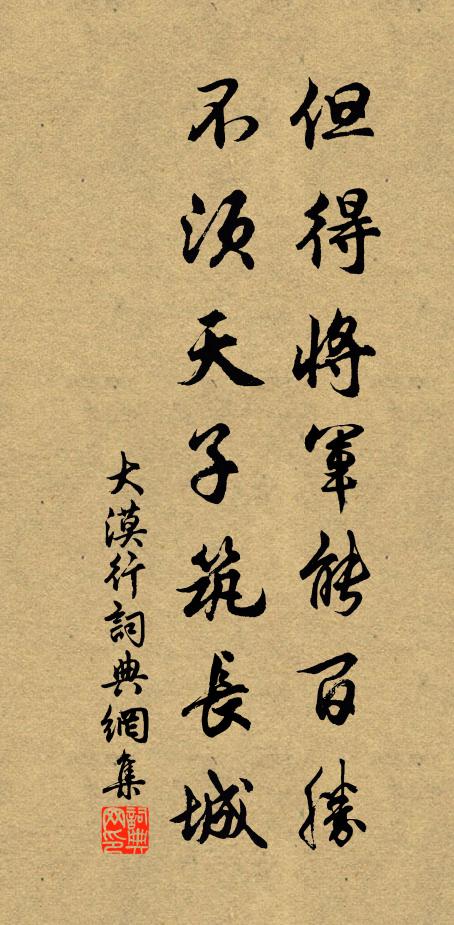 但得將軍能百勝
不須天子筑長城
大漠行詞典網集
詞典网印